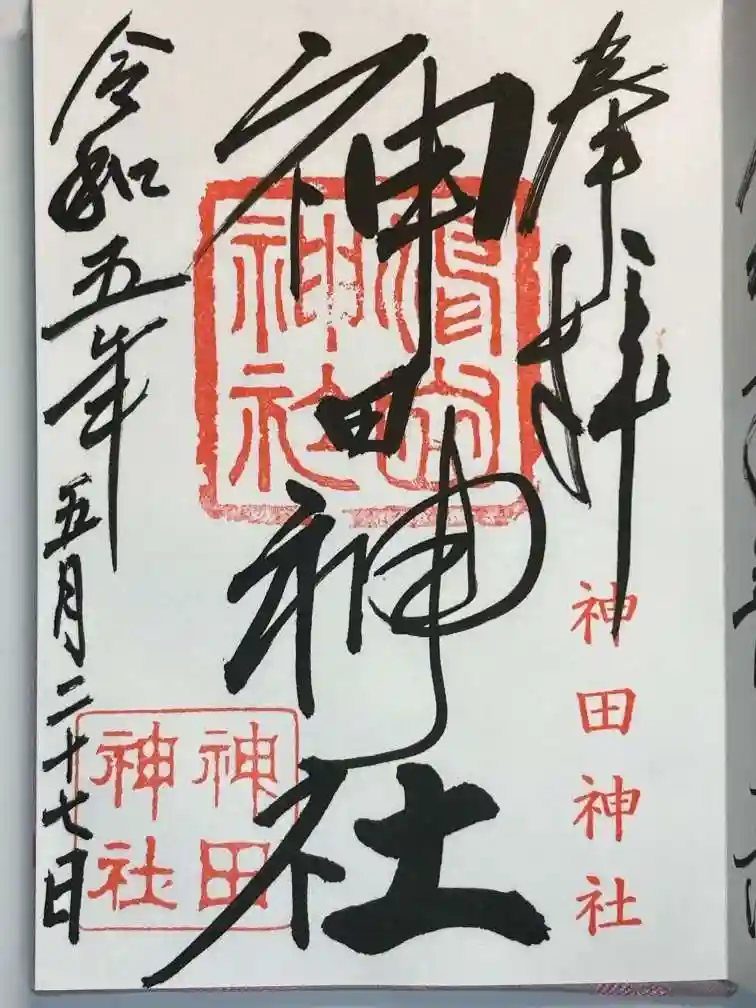 奉拝
神田神社
神田神社
神田神社
令和五年五月二十七日